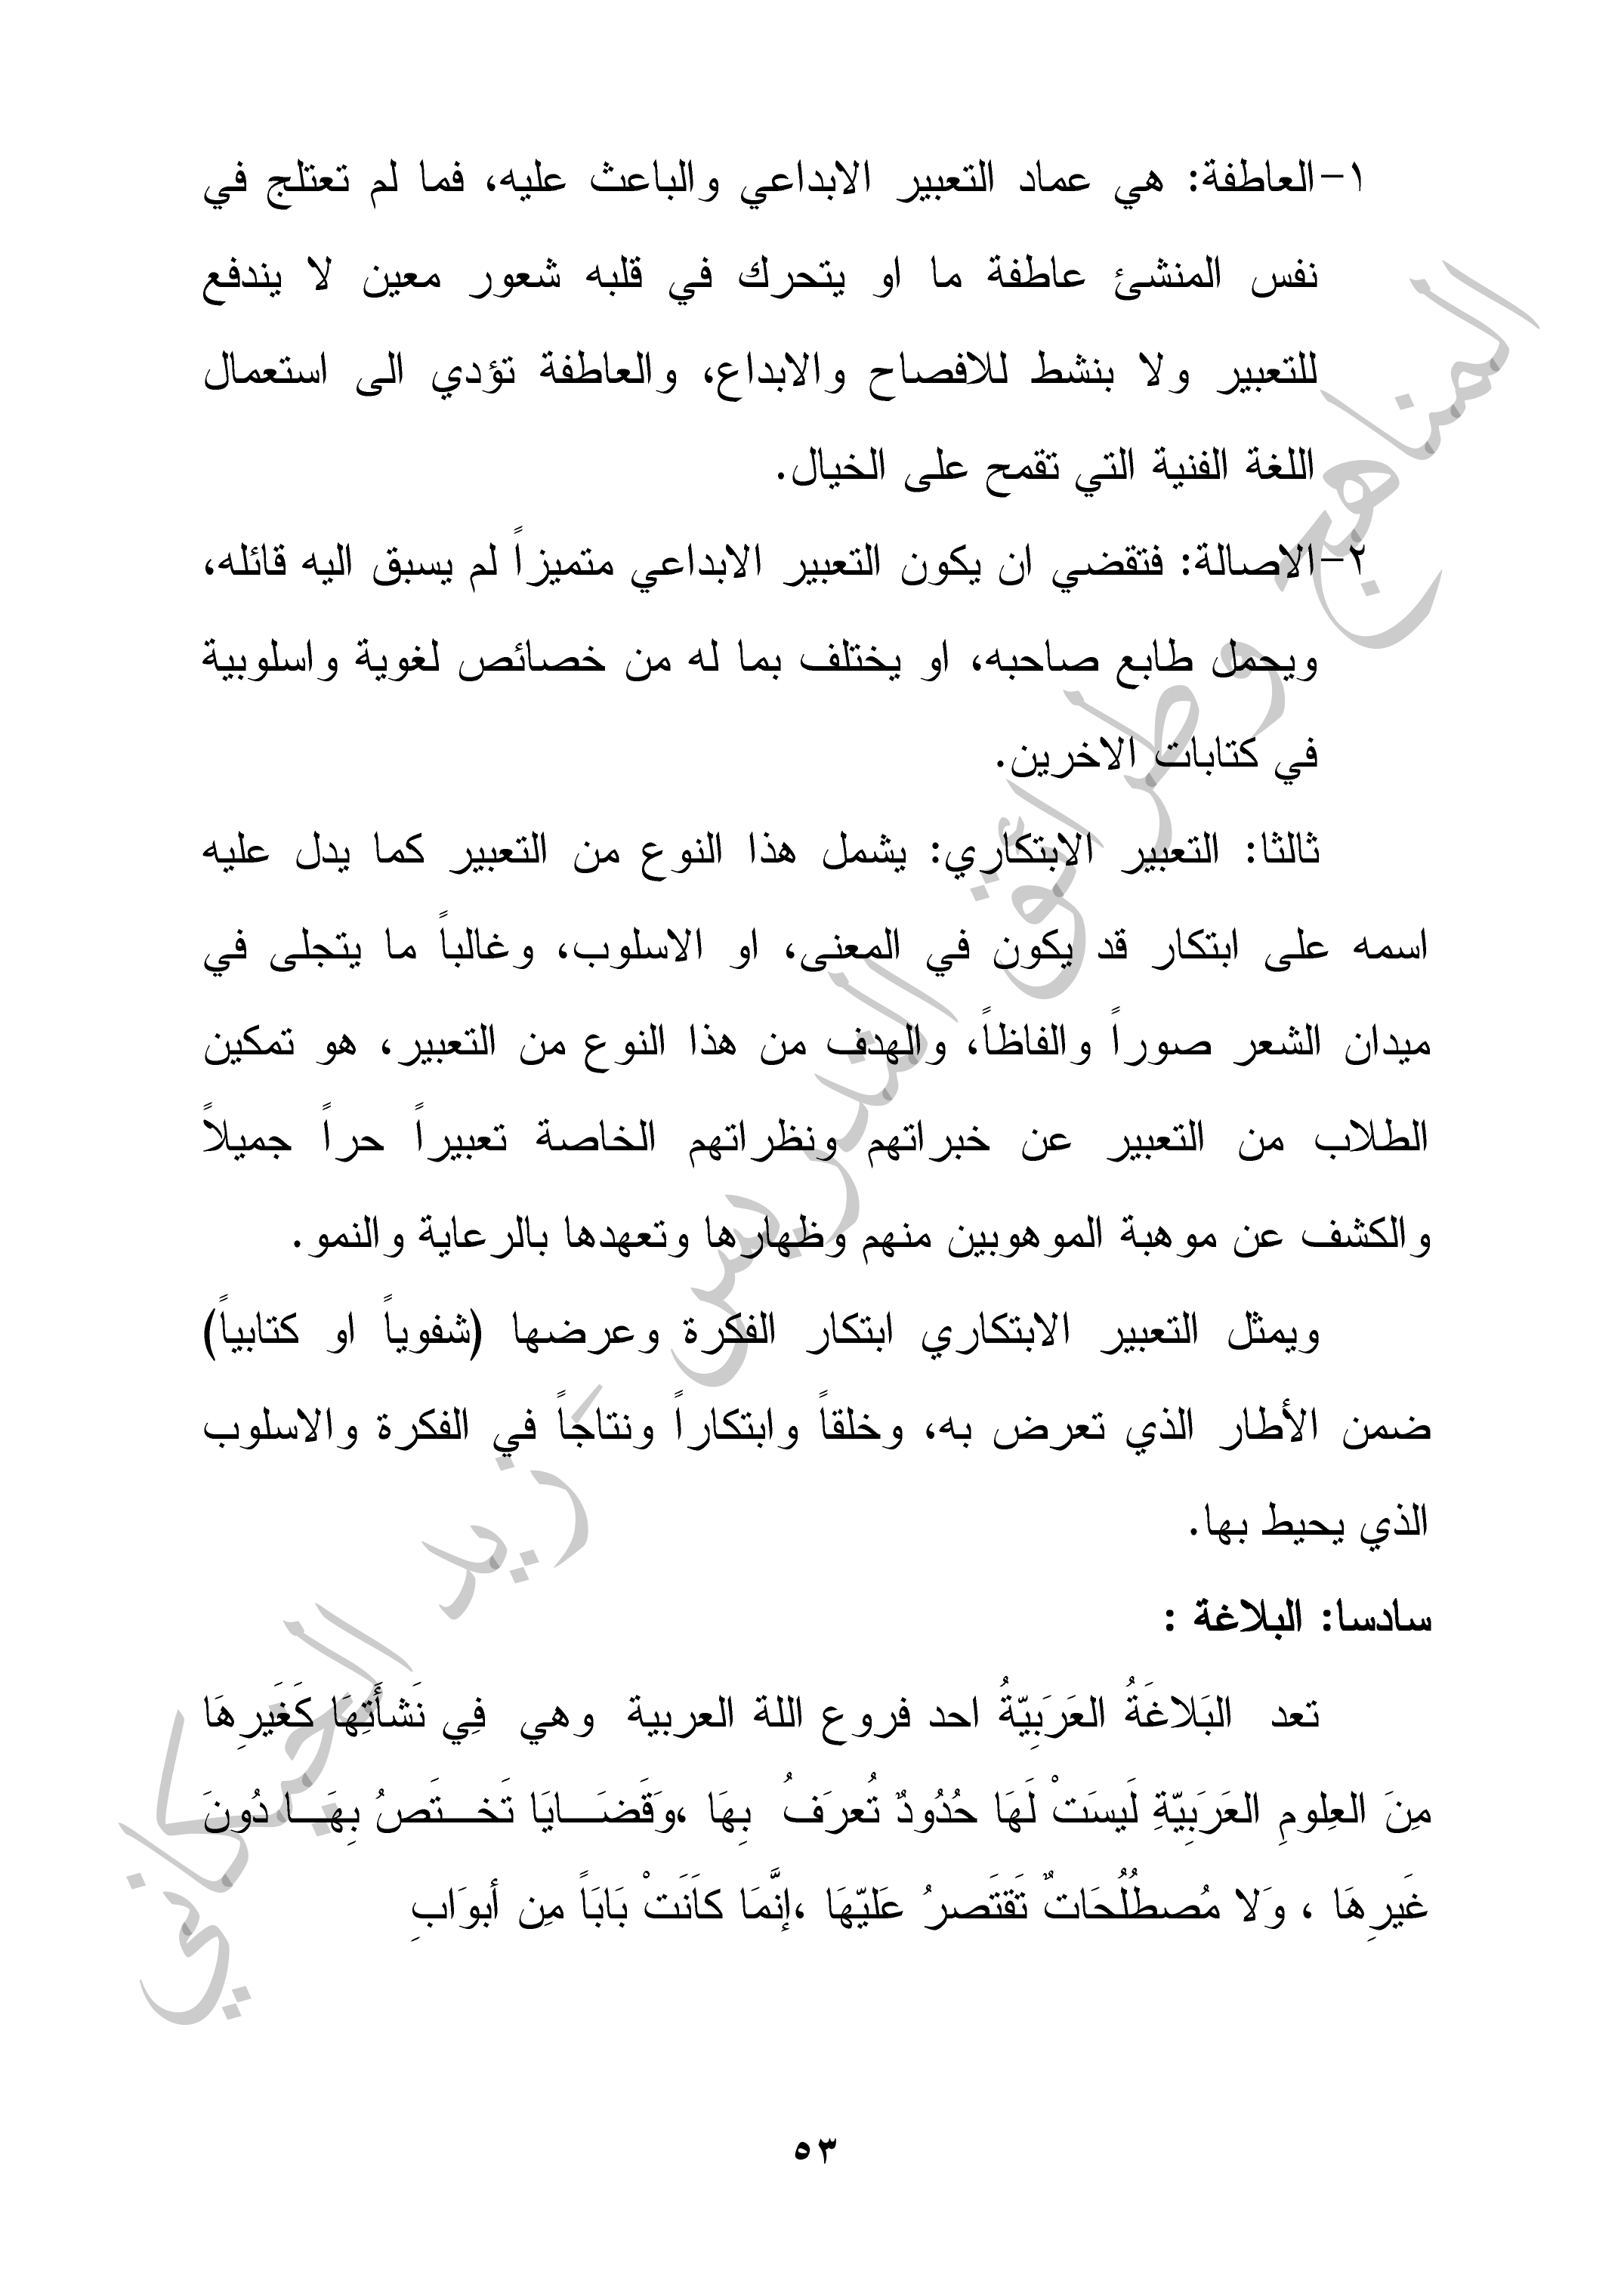 ١-العاطفة: هي عماد التعبير الابداعي والباعث عليه، فما لم تعتلج في
نفس المنشئ عاطفة ما او يتحرك في قلبه شعور معين لا يندفع
للتعبير ولا بنشط للافصاح والابداع، والعاطفة تؤدي الى استعمال
اللغة الفنية التي تقمح على الخيال.
٢-الاصالة: فتقضي ان يكون التعبير الابداعي متميزاً لم يسبق اليه قائله،
ويحمل طابع صاحبه، او يختلف بما له من خصائص لغوية واسلوبية
في كتابات الاخرين.
ثالثا: التعبير الابتكاري: يشمل هذا النوع من التعبير كما يدل عليه
اسمه على ابتكار قد يكون في المعنى، او الاسلوب، وغالباً ما يتجلى في
ميدان الشعر صوراً والفاظاً، والهدف من هذا النوع من التعبير، هو تمكين
الطلاب من التعبير عن خبراتهم ونظراتهم الخاصة تعبيراً حراً جميلاً
والكشف عن موهبة الموهوبين منهم وظهارها وتعهدها بالرعاية والنمو.
ويمثل التعبير الابتكاري ابتكار الفكرة وعرضها (شفوياً او كتابياً)
ضمن الأطار الذي تعرض به، وخلقاً وابتكاراً ونتاجاً في الفكرة والاسلوب
الذي يحيط بها.
سادسا: البلاغة :
تعد البَلاغَةُ العَرَبِيّةُ احد فروع اللة العربية وهي فِي نَشأَتِهَا كَغَيرِهَا
مِنَ العِلومِ العَرَبِيّةِ لَيسَتْ لَهَا حُدُودٌ تُعرَفُ بِهَا ،وَقَضَـــايَا تَخـــتَصُ بِهَـــا دُونَ
غَيرِهَا ، وَلا مُصطُلُحَاتٌ تَقتَصرُ عَليّهَا ،إنَّمَا كاَنَتْ بَابَاً مِن أبوَابِ
٥٣
المناهج وطرائق التدريس - زيد الخيكاني